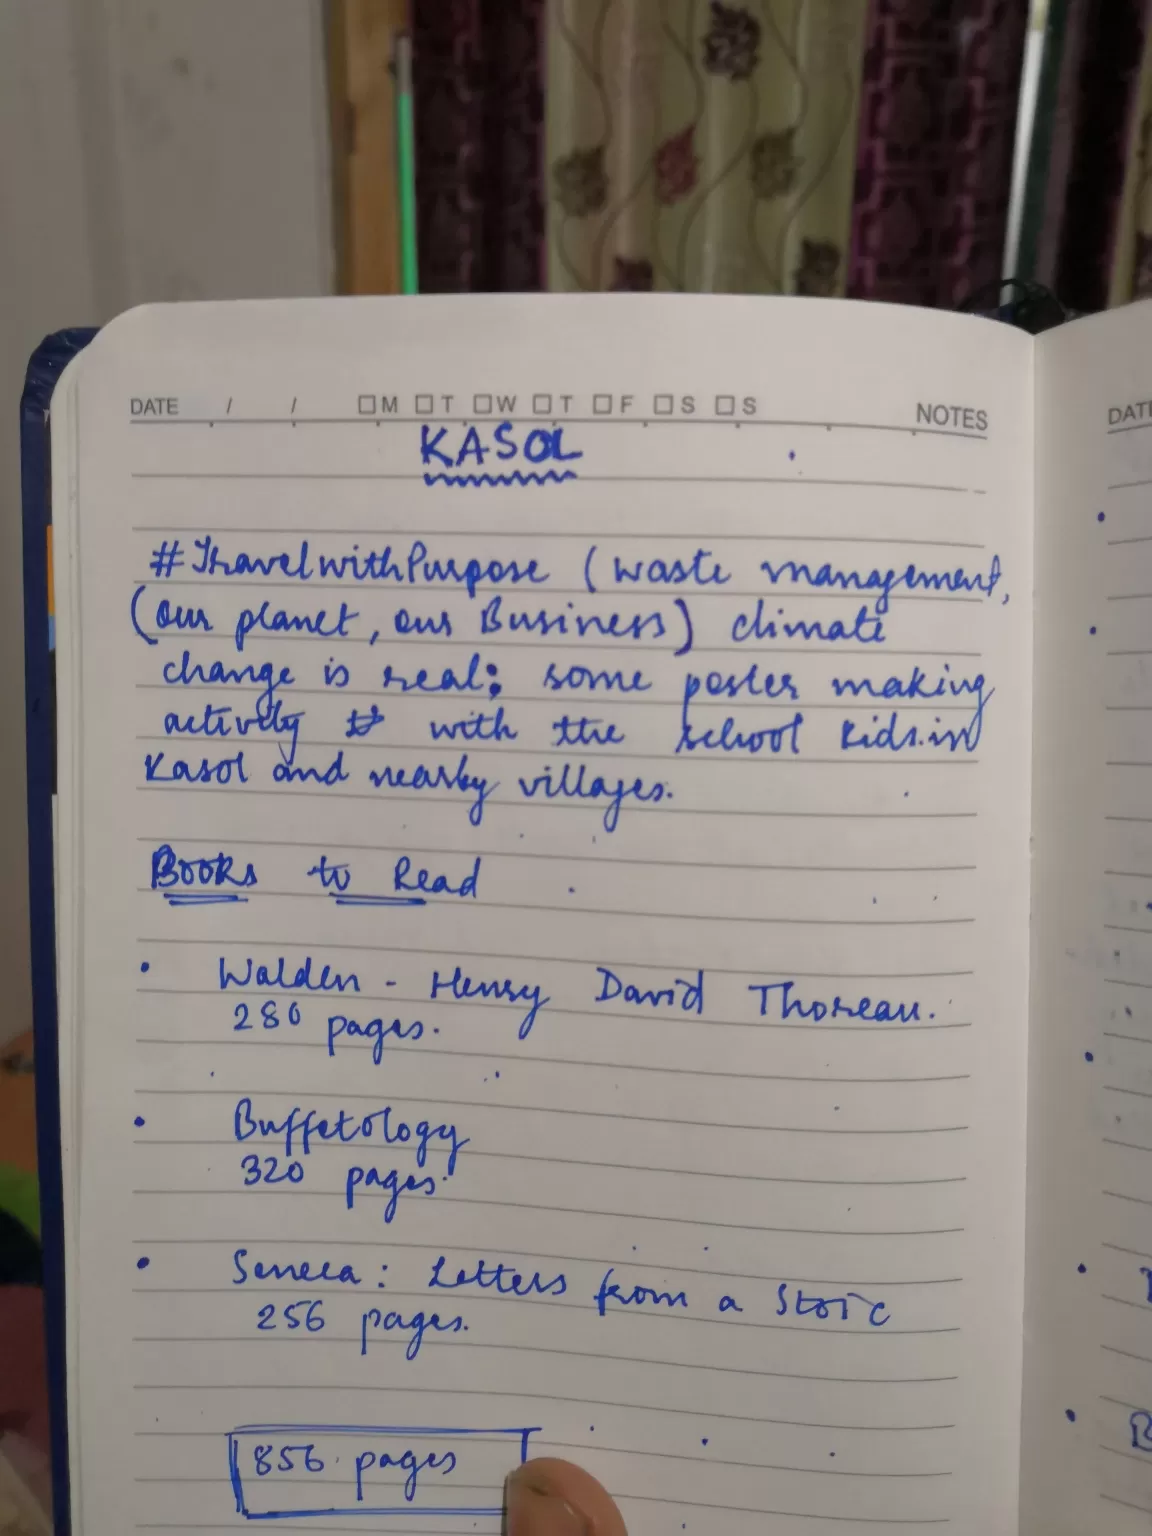 DATE / / M T W T F S S NOTES
KASOL
#TravelwithPurpose (waste management,
(our planet, our Business) climate
change is real; some poster making
activity with the school kids in
Kasol and nearby villages.
Books to Read
• Walden - Henry David Thoreau.
280 pages.
• Buffetology
320 pages.
• Seneca: Letters from a Stoic
256 pages.
856 pages
DATE
B